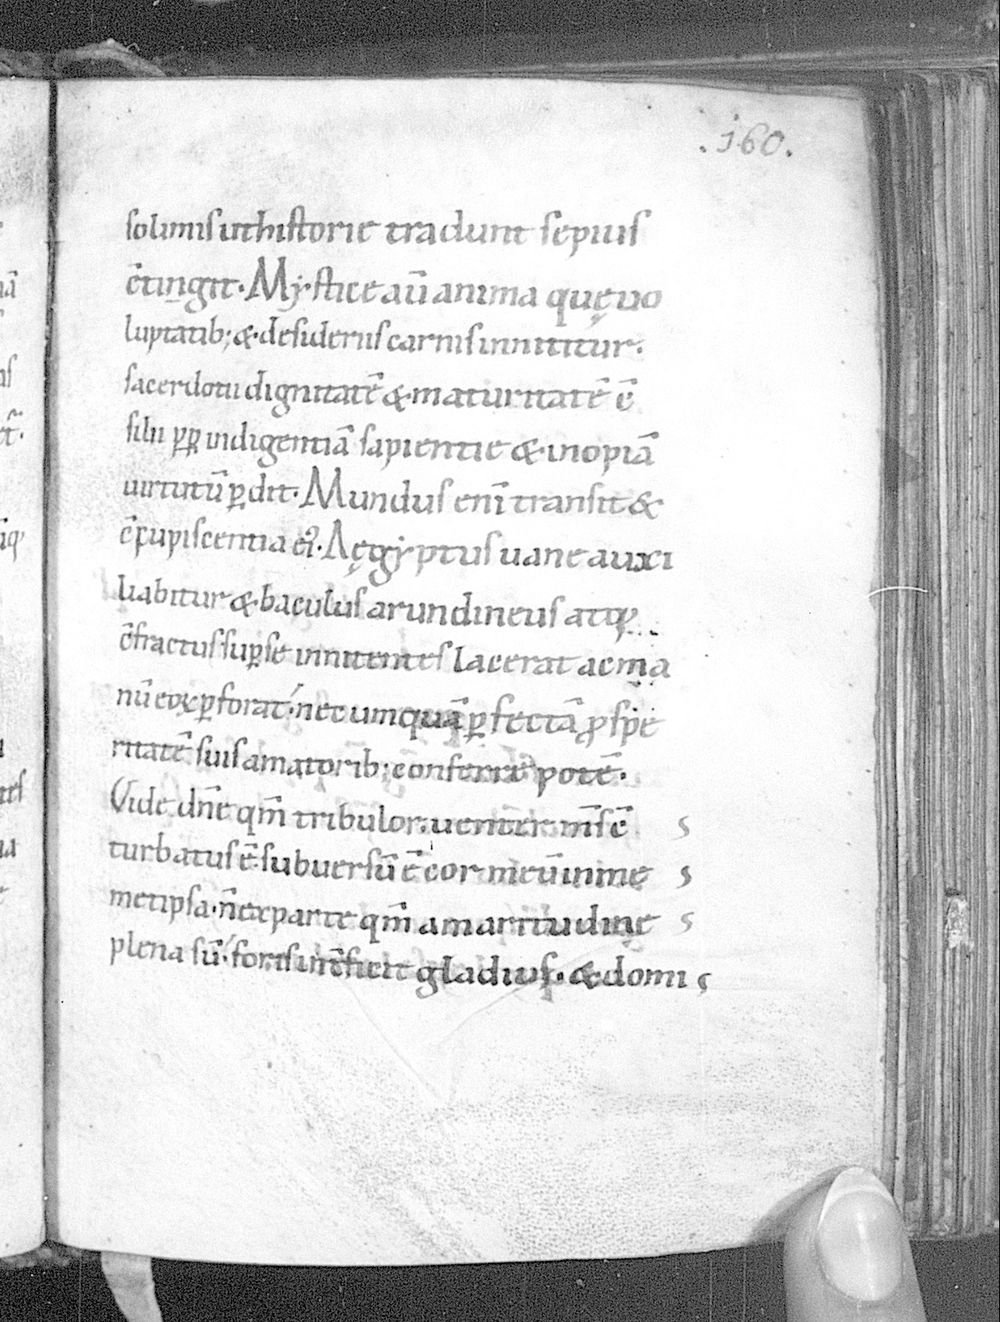 .160.
solimis ut historie tradunt sepius
c̄tingit. Mẏstice aū anima quę uo
luptatib; & desideriis carnis innititur.
sacerdotii dignitatē & maturitatē c̄
silii ꝓpꝑ indigentiā sapientie & inopiā
uirtutū ꝑdit. Mundus eni transit &
c̄cupiscentia ei᾽. Aęgẏptus uane auxi
liabitur & baculus arundineus atq;
c̄fractus suꝑ se innitentes lacerat ac ma
nū eoꝝ ꝑforat. nec umquā ꝑfectā ꝓspe
ritatē suis amatorib; conferre potē.
Vide dn̄e qm̄ tribulor. uenter ms̄ ē s
turbatus ē. subuersū ē cor meū in me s
metipsa. n̄ ex parte qm̄ amaritudine s
plena sū. foris int̄ficit gladius. & domi s
nā